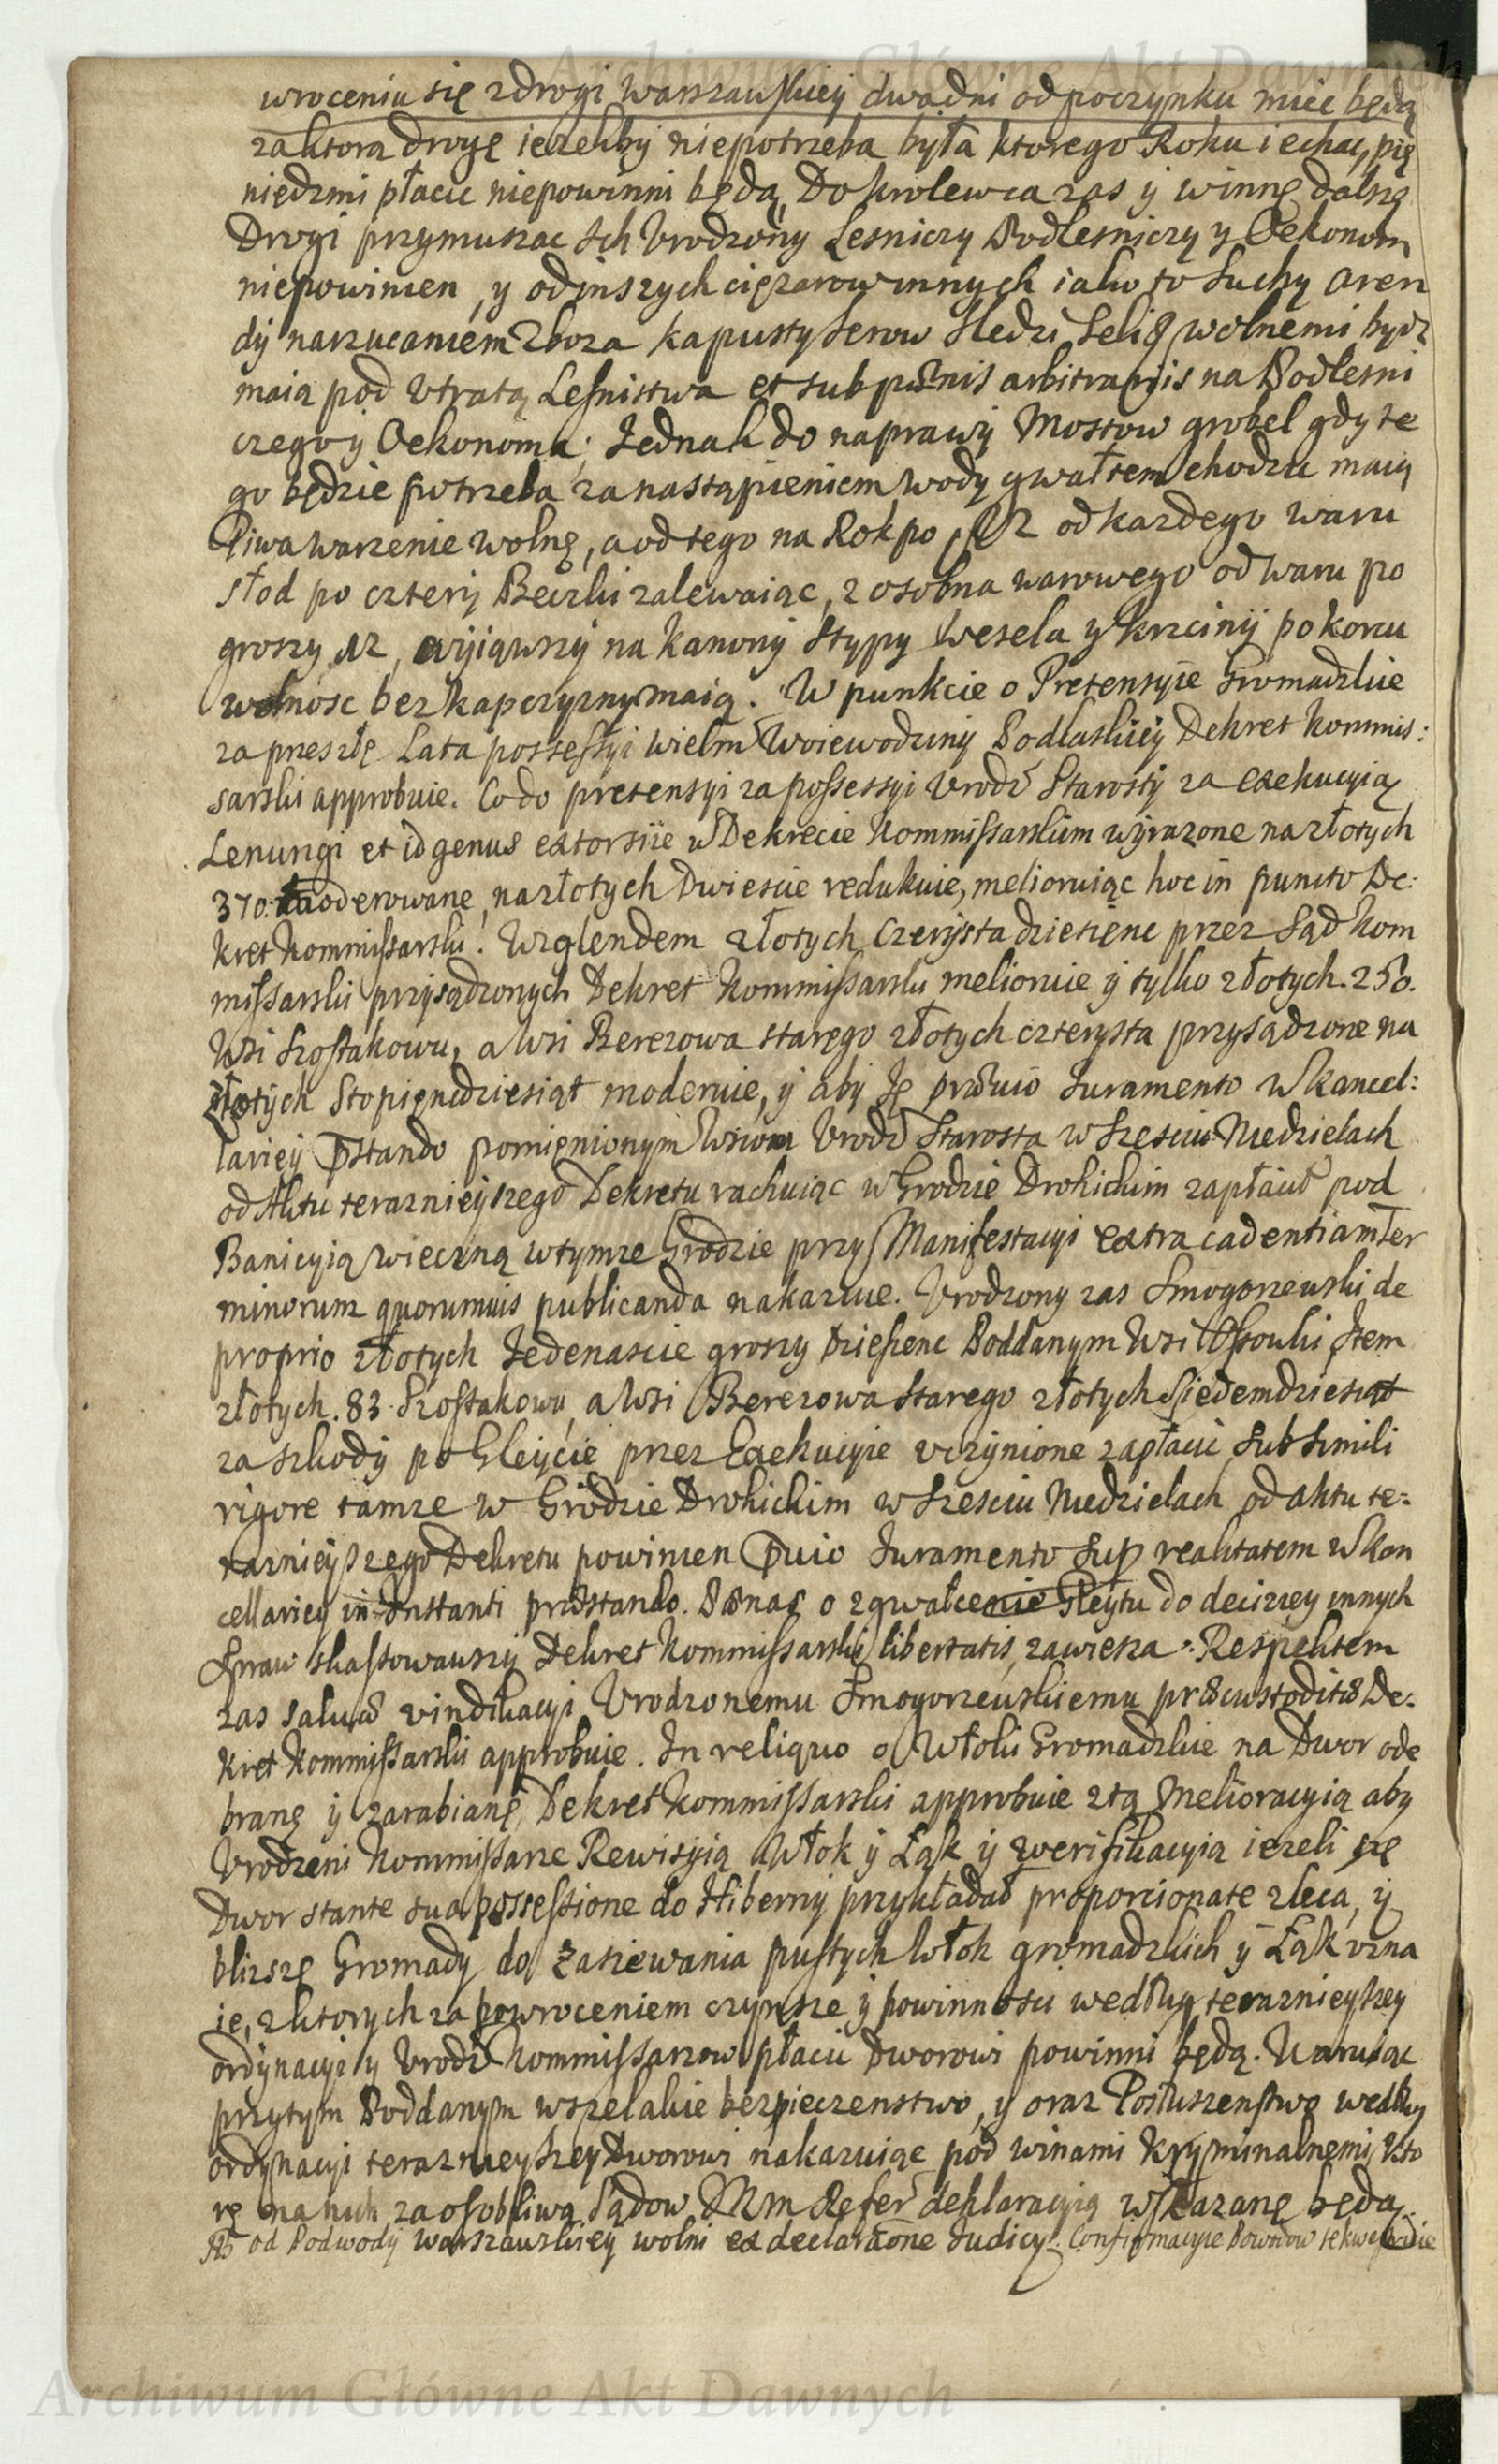 Archiwum Główne Akt Dawnych
wroceniu się z drogi Warszawskiey dwa dni odpoczynku miec będą
za ktorą drogę ieżeliby niepotrzeba była ktorego Roku iechac, pię
niędzmi płacic niepowinni będą, Do Krolewca zas y w inne dalszę
Drogi przymuszac Ich Urodzony Lesniczy Podlesniczy y Oekonom
niepowinien, y od inszych cięzarow innych iako to Suchy aren
dy narzucaniem Zboza kapusty Serow Sledzi Seliq wolnemi bydz
maią pod utratą Lesnistwa et sub pœnis arbitrarijs na Podlesni
czego y Oekonoma; Jednak do naprawy Mostow grobel gdy te
go będzie potrzeba za nastąpieniem wody gwałtem chodzic maią
Piwa warzenie wolnę, a od tego na Rok po 12 od kazdego waru
słod po cztery Beczki zalewaiąc, z osobna warowego od waru po
groszy 12, wyiąwszy na Kanony Stypy Wesela y krzciny po korcu
wolnosc bez kapczyzny maią. W punkcie o Pretensyie Gromadzkie
za przeszłę Lata possessyi Wielm Woiewodziny Podlaskiey Dekret Kommis:
sarski approbuie. Co do pretensyi za possessyi Urodz Starosty za exekucyią
Lenungi et id genus extorsiie w Dekrecie Kommissarskim wyrazone na złotych
370. moderowane, na złotych Dwiescie redukuie, melioruiąc hoc in puncto De:
kret Kommissarski. Wzglendem złotych Czerysta dziesięnc przez Sąd Kom
missarski przysądzonych Dekret Kommissarski melioruie y tylko złotych. 250.
Wsi Szostakowu, a Wsi Berezowa starego złotych czterysta przysądzone na
złotych Stopięndziesiąt moderuie, y aby Ię prævio Juramento w Kancel:
lariey præstando pomienionym Wsiom Urodz Starosta w Szesciu Niedzielach
od Aktu teraznieyszego Dekretu rachuiąc w Grodzie Drohickim zapłacił pod
Banicyią wieczną w tymze Grodzie przy Manifestacyi extra cadentiam Ter
minorum quorumvis publicanda nakazuie. Urodzony zas Smogorzewski de
proprio złotych Jedenascie groszy Dziesienc Poddanym Wsi Ossowki Item
złotych. 83 Szostakowu, a Wsi Berezowa Starego złotych Siedemdziesiat
za szkody po Gleycie przez Exekucyie uczynione zapłacic sub simili
rigore tamze w Grodzie Drohickim w Szesciu Niedzielach od aktu te:
raznieyszego Dekretu powinien prævio Juramento sup realitatem w Kan
cellariey in instanti præstando. Pœnas o zgwałcenie Gleytu do decizyey innych
Spraw skassowawszy Dekret Kommissarski libertatis, zawiesza. Respektem
zas salvæ vindikacyi Urodzonemu Smogorzewskiemu præcustoditæ De:
kret Kommissarski approbuie. In reliquo o Włoki Gromadzkie na Dwor ode
branę y zarabianę, Dekret Kommissarski approbuie z tą Melioracyią aby
Urodzeni Kommissarze Rewisyią Włok y Łąk y zwerifikacyią iezeli się
Dwor stante sua possessione do Hiberny przykładał proporcionate zleca, y
blizszę Gromady do zasiewania pustych Włok gromadzkich y Łąk uzna
ie, z ktorych za powroceniem czynsze y powinnosci według teraznieyszey
ordynacyi y Urodz Kommissarzow płacic Dworowi powinni będą. Waruiąc
przytym Poddanym wszelakie bezpieczenstwo, y oraz Posłuszenstwo według
ordynacyi teraznieyszey Dworowi nakazuiąc pod winami Kryminalnemi, kto
rę na nich za osobliwą Sądow Mm Refer deklaracyią wskazanę będą.
NB od Podwody Warszawskiey wolni ex declaraõne Judicy. Confirmacyie Powodow
Archiwum Główne Akt Dawnych